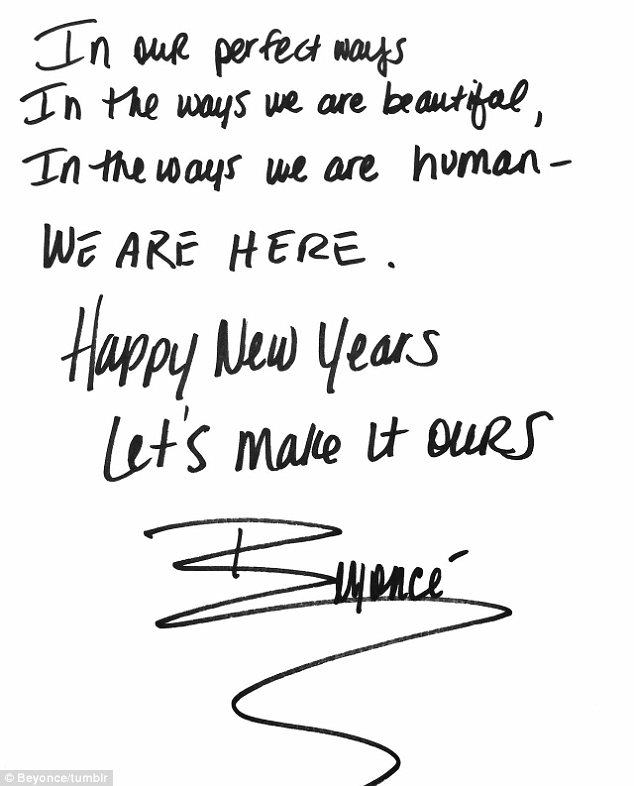 In our perfect ways
In the ways we are beautiful,
In the ways we are human –
WE ARE HERE.
Happy New Years
Let's make it OURS
Beyoncé
© Beyonce/tumblr